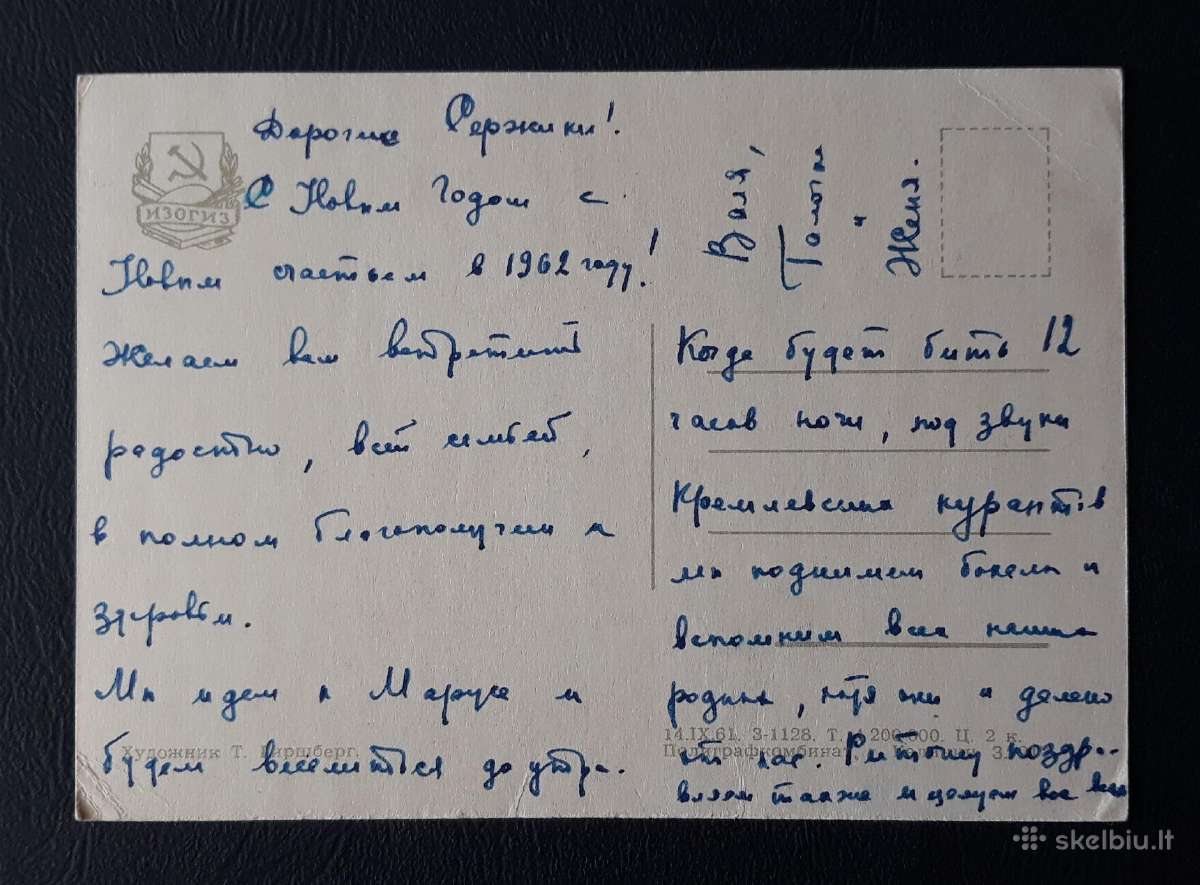 Дорогие Сержики!
С Новым Годом с
Новым счастьем в 1962 году!
Желаем вам встретить
радостно, всей семьей,
в полном благополучии и
здоровьи.
Мы идем к Марусе и
будем веселиться до утра.
Валя,
Толик
и
Женя.
Когда будет бить 12
часов ночи, под звуки
Кремлевских курантов
мы поднимем бокалы и
вспомним всех наших
родных, хотя они и далеко
от нас. поздр-
вляем также и целуем все вас
ИЗОГИЗ
Художник Т. Гиршберг.
14.IX.61. З-1128. Т. 1 200 000. Ц. 2 к.
Полиграфкомбинат
skelbiu.lt